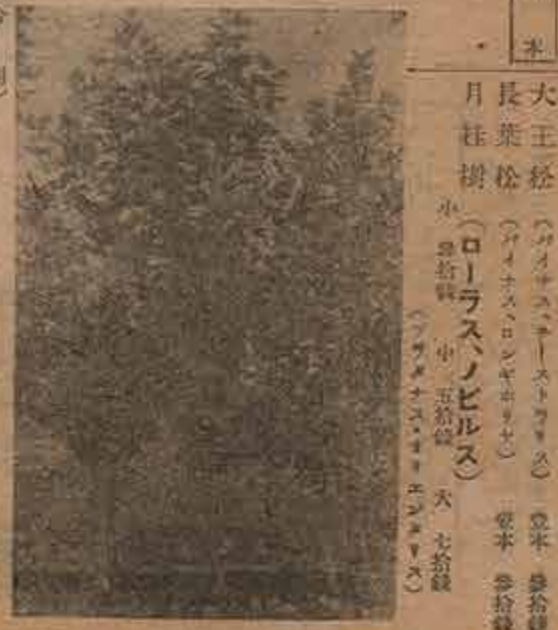 本
大王松 (パイナス、オーストラリス) 壹本 參拾錢
長葉松 (パイナス、ロンギホリヤ) 壹本 參拾錢
月桂樹 (ローラス、ノビルス)
小 參拾錢 中 五拾錢 大 七拾錢
(プラタナス、オリエンタリス)